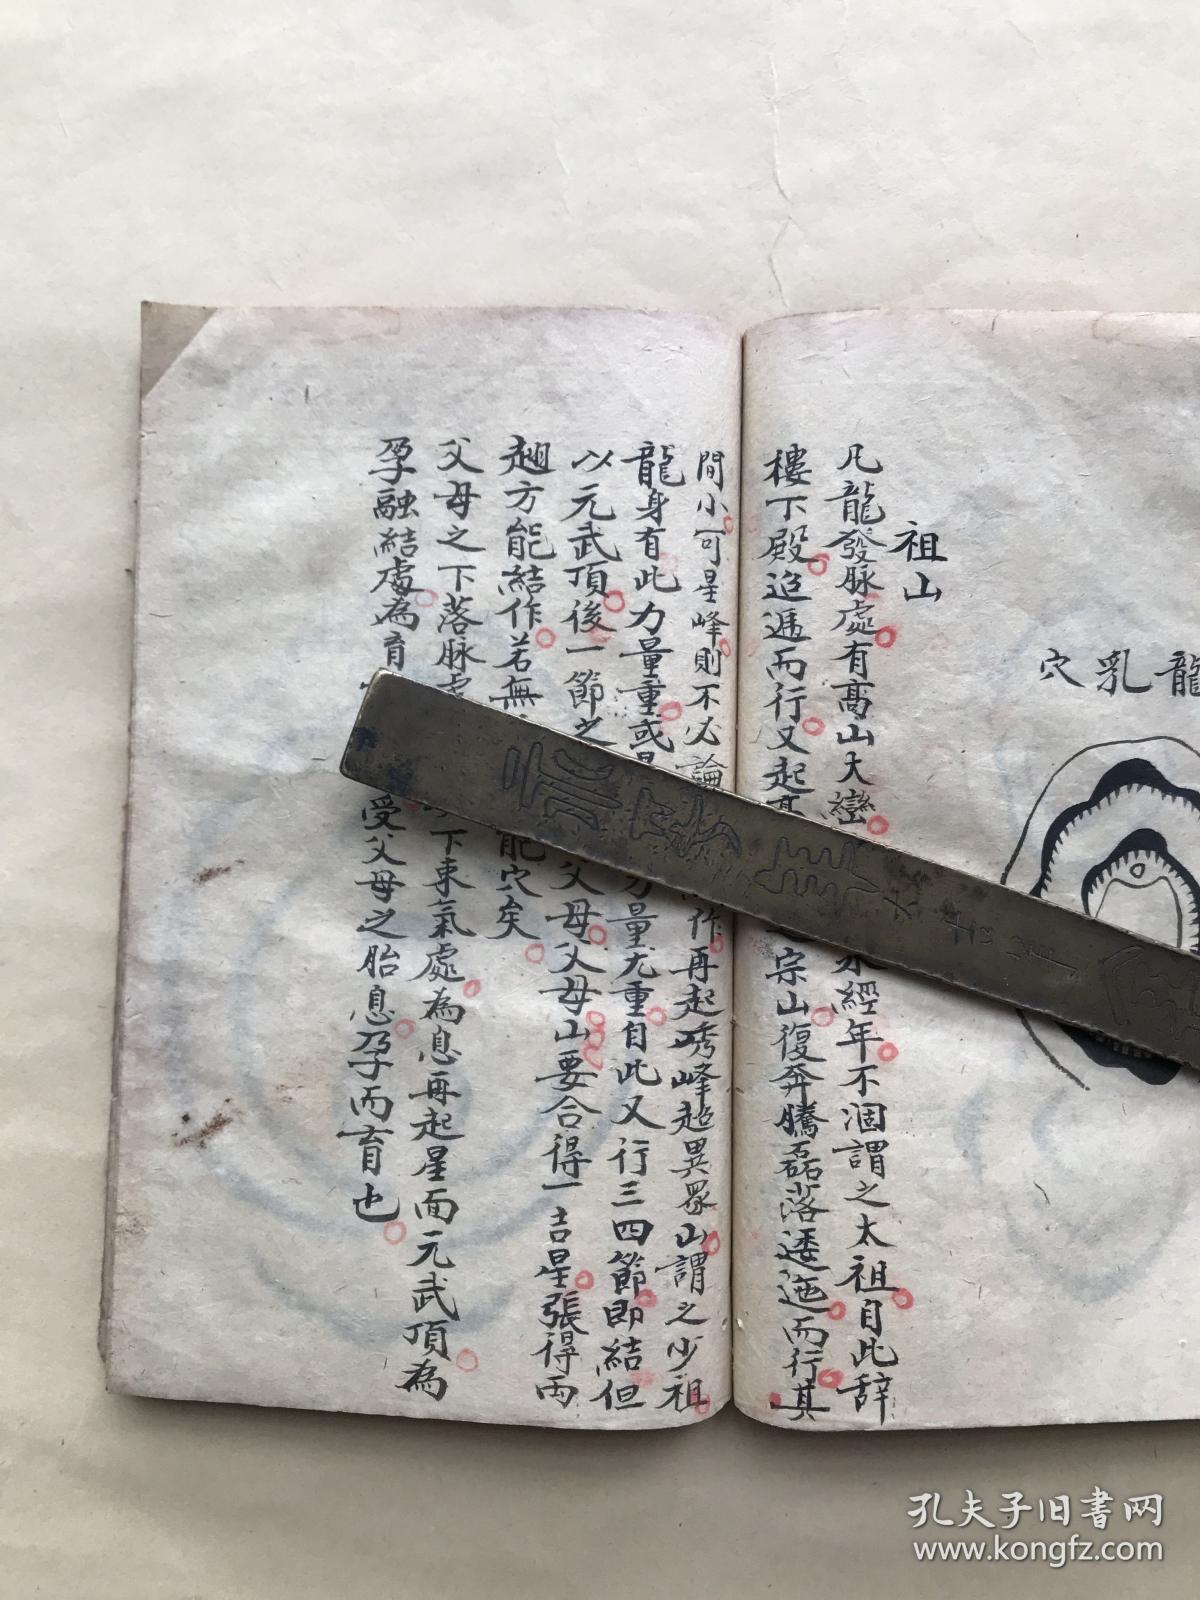 龍乳穴
祖山
凡龍發脉處有高山大巒 水經年不涸謂之太祖自此辞
樓下殿迢遞而行又起 宗山復奔騰磊落逶迤而行其
間小可星峰則不必論 作再起秀峰超異眾山謂之少祖
龍身有此力量重或 力量尤重自此又行三四節即結但
以元武頂後一節之 父母父母山要合得一吉星張得両
翅方能結作若無 能穴矣
父母之下落脉處 下束氣處為息再起星面元武頂為
孕融結處為育 受父母之胎息孕而育也
大吉羊
孔夫子旧书网
www.kongfz.com